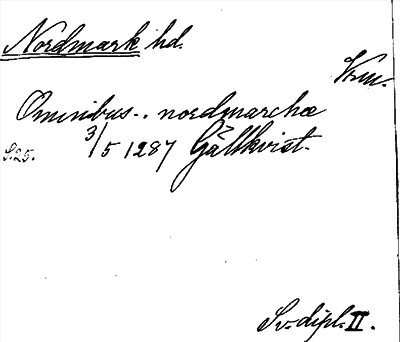 Nordmark hd.
Vrm.
Omnibus.. nordmarchæ
S.25. 3/5 1287 Gällkvist.
Sv. dipl. II.